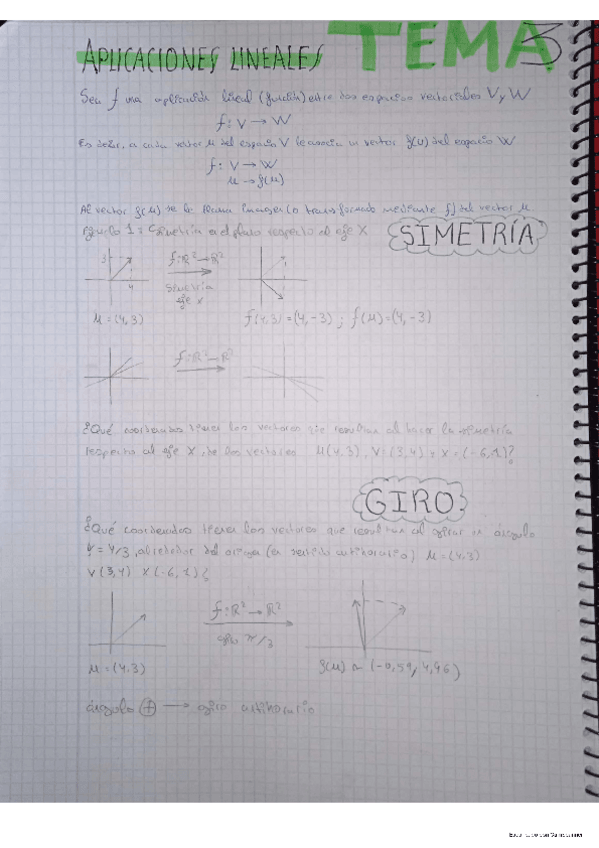 APLICACIONES LINEALES TEMA 3
Sea f una aplicación lineal (función) entre dos espacios vectoriales V y W
f: V → W
Es decir, a cada vector μ del espacio V le asocia un vector f(μ) del espacio W
f: V → W
μ → f(μ)
Al vector f(μ) se le llama imagen (o transformado mediante f) del vector μ
Ejemplo 1: Simetría en el plano respecto al eje X
SIMETRÍA
3
4
f: ℝ² → ℝ²
Simetría
eje x
μ = (4,3)
f(4,3) = (4,-3) ; f(μ) = (4,-3)
f: ℝ² → ℝ²
¿Qué coordenadas tienen los vectores que resultan al hacer la simetría
respecto al eje X, de los vectores μ(4,3), V=(3,4) y X=(-6,1)?
GIRO
¿Qué coordenadas tienen los vectores que resultan al girar un ángulo
= π/3, alrededor del origen (en sentido antihorario) μ = (4,3)
V(3,4) X(-6,1)?
f: ℝ² → ℝ²
giro π/3
μ = (4,3)
f(μ) ≈ (-0,59, 4,96)
ángulo + → giro antihorario